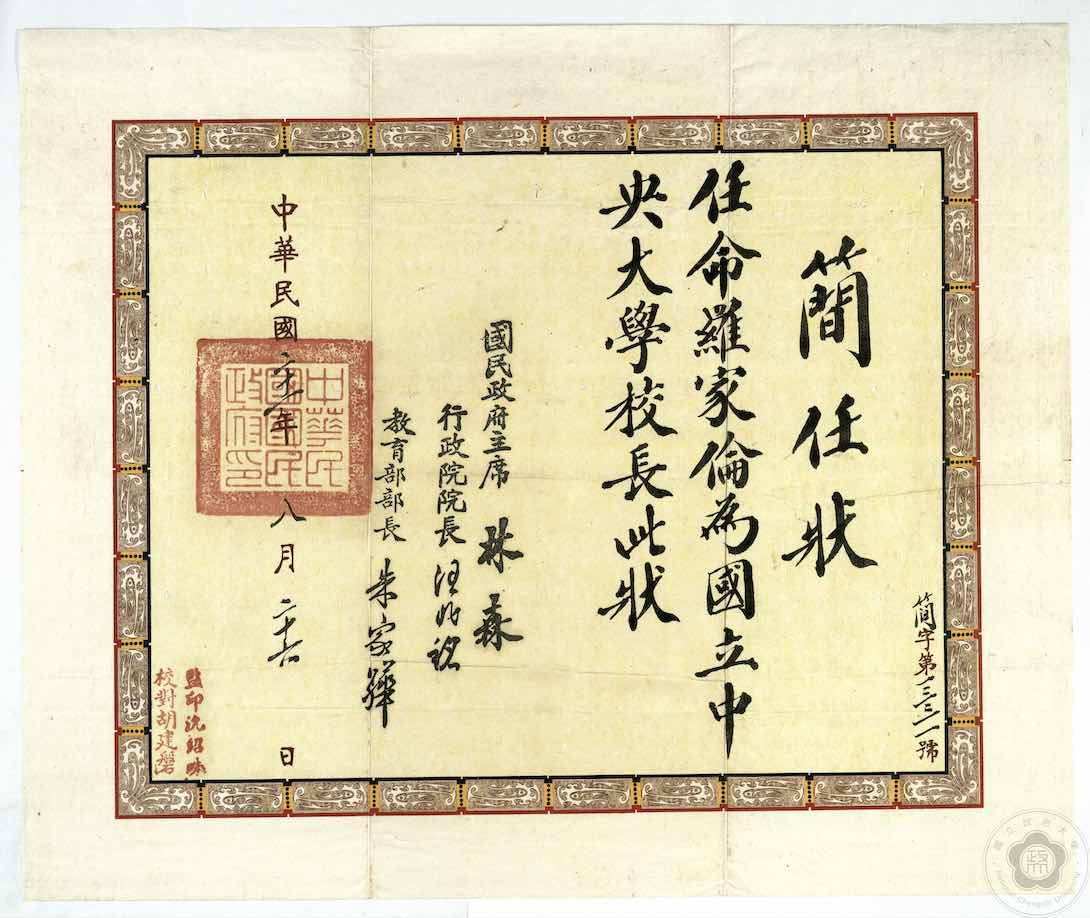 簡字第號
簡任狀
任命羅家倫為國立中
央大學校長此狀
國民政府主席 林森
行政院院長 汪兆銘
教育部部長 朱家驊
中華民國二十一年八月二十六日
中華民
國國民
政府印
監印沈紹
校對胡建磐
國立政治大學
National Chengchi University